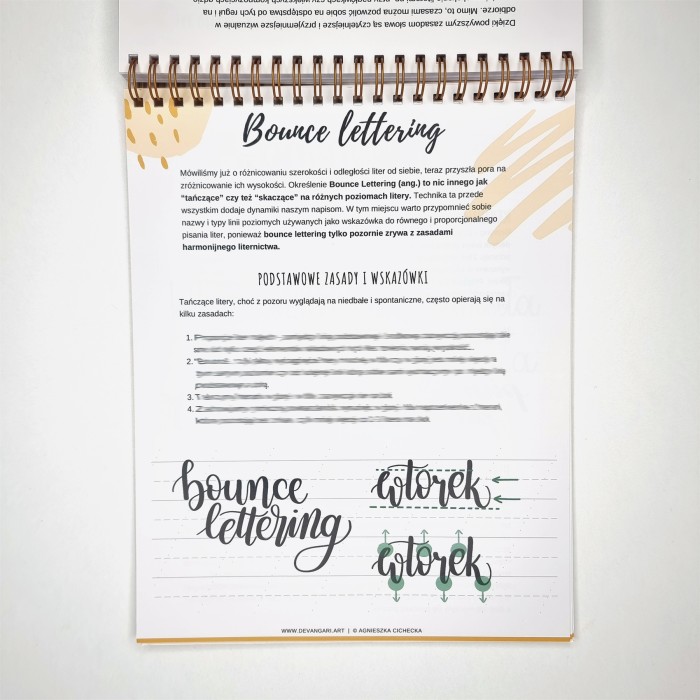 Dzięki powyższym zasadom słowa są czytelniejsze i przyjemniejsze wizualnie w
odbiorze. Mimo to, czasami można pozwolić sobie na odstępstwa od tych reguł i na
Bounce lettering
Mówiliśmy już o różnicowaniu szerokości i odległości liter od siebie, teraz przyszła pora na
zróżnicowanie ich wysokości. Określenie Bounce Lettering (ang.) to nic innego jak
"tańczące" czy też "skaczące" na różnych poziomach litery. Technika ta przede
wszystkim dodaje dynamiki naszym napisom. W tym miejscu warto przypomnieć sobie
nazwy i typy linii poziomych używanych jako wskazówka do równego i proporcjonalnego
pisania liter, ponieważ bounce lettering tylko pozornie zrywa z zasadami
harmonijnego liternictwa.
PODSTAWOWE ZASADY I WSKAZÓWKI
Tańczące litery, choć z pozoru wyglądają na niedbałe i spontaniczne, często opierają się na
kilku zasadach:
1.
2.
3.
4.
bounce
lettering
wtorek
wtorek
WWW.DEVANGARI.ART | © AGNIESZKA CICHECKA